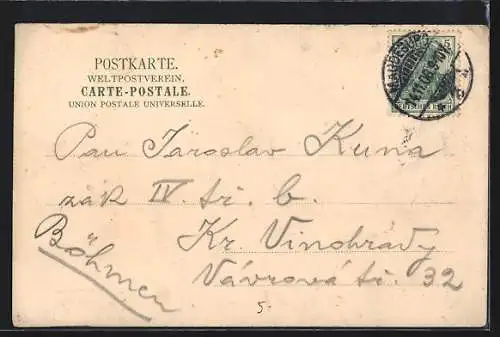 POSTKARTE.
WELTPOSTVEREIN.
CARTE-POSTALE.
UNION POSTALE UNIVERSELLE.
Pan Jaroslav Kuna
žák IV. tř. b.
Kr. Vinohrady
Vávrová tř. 32
Böhmen
5.